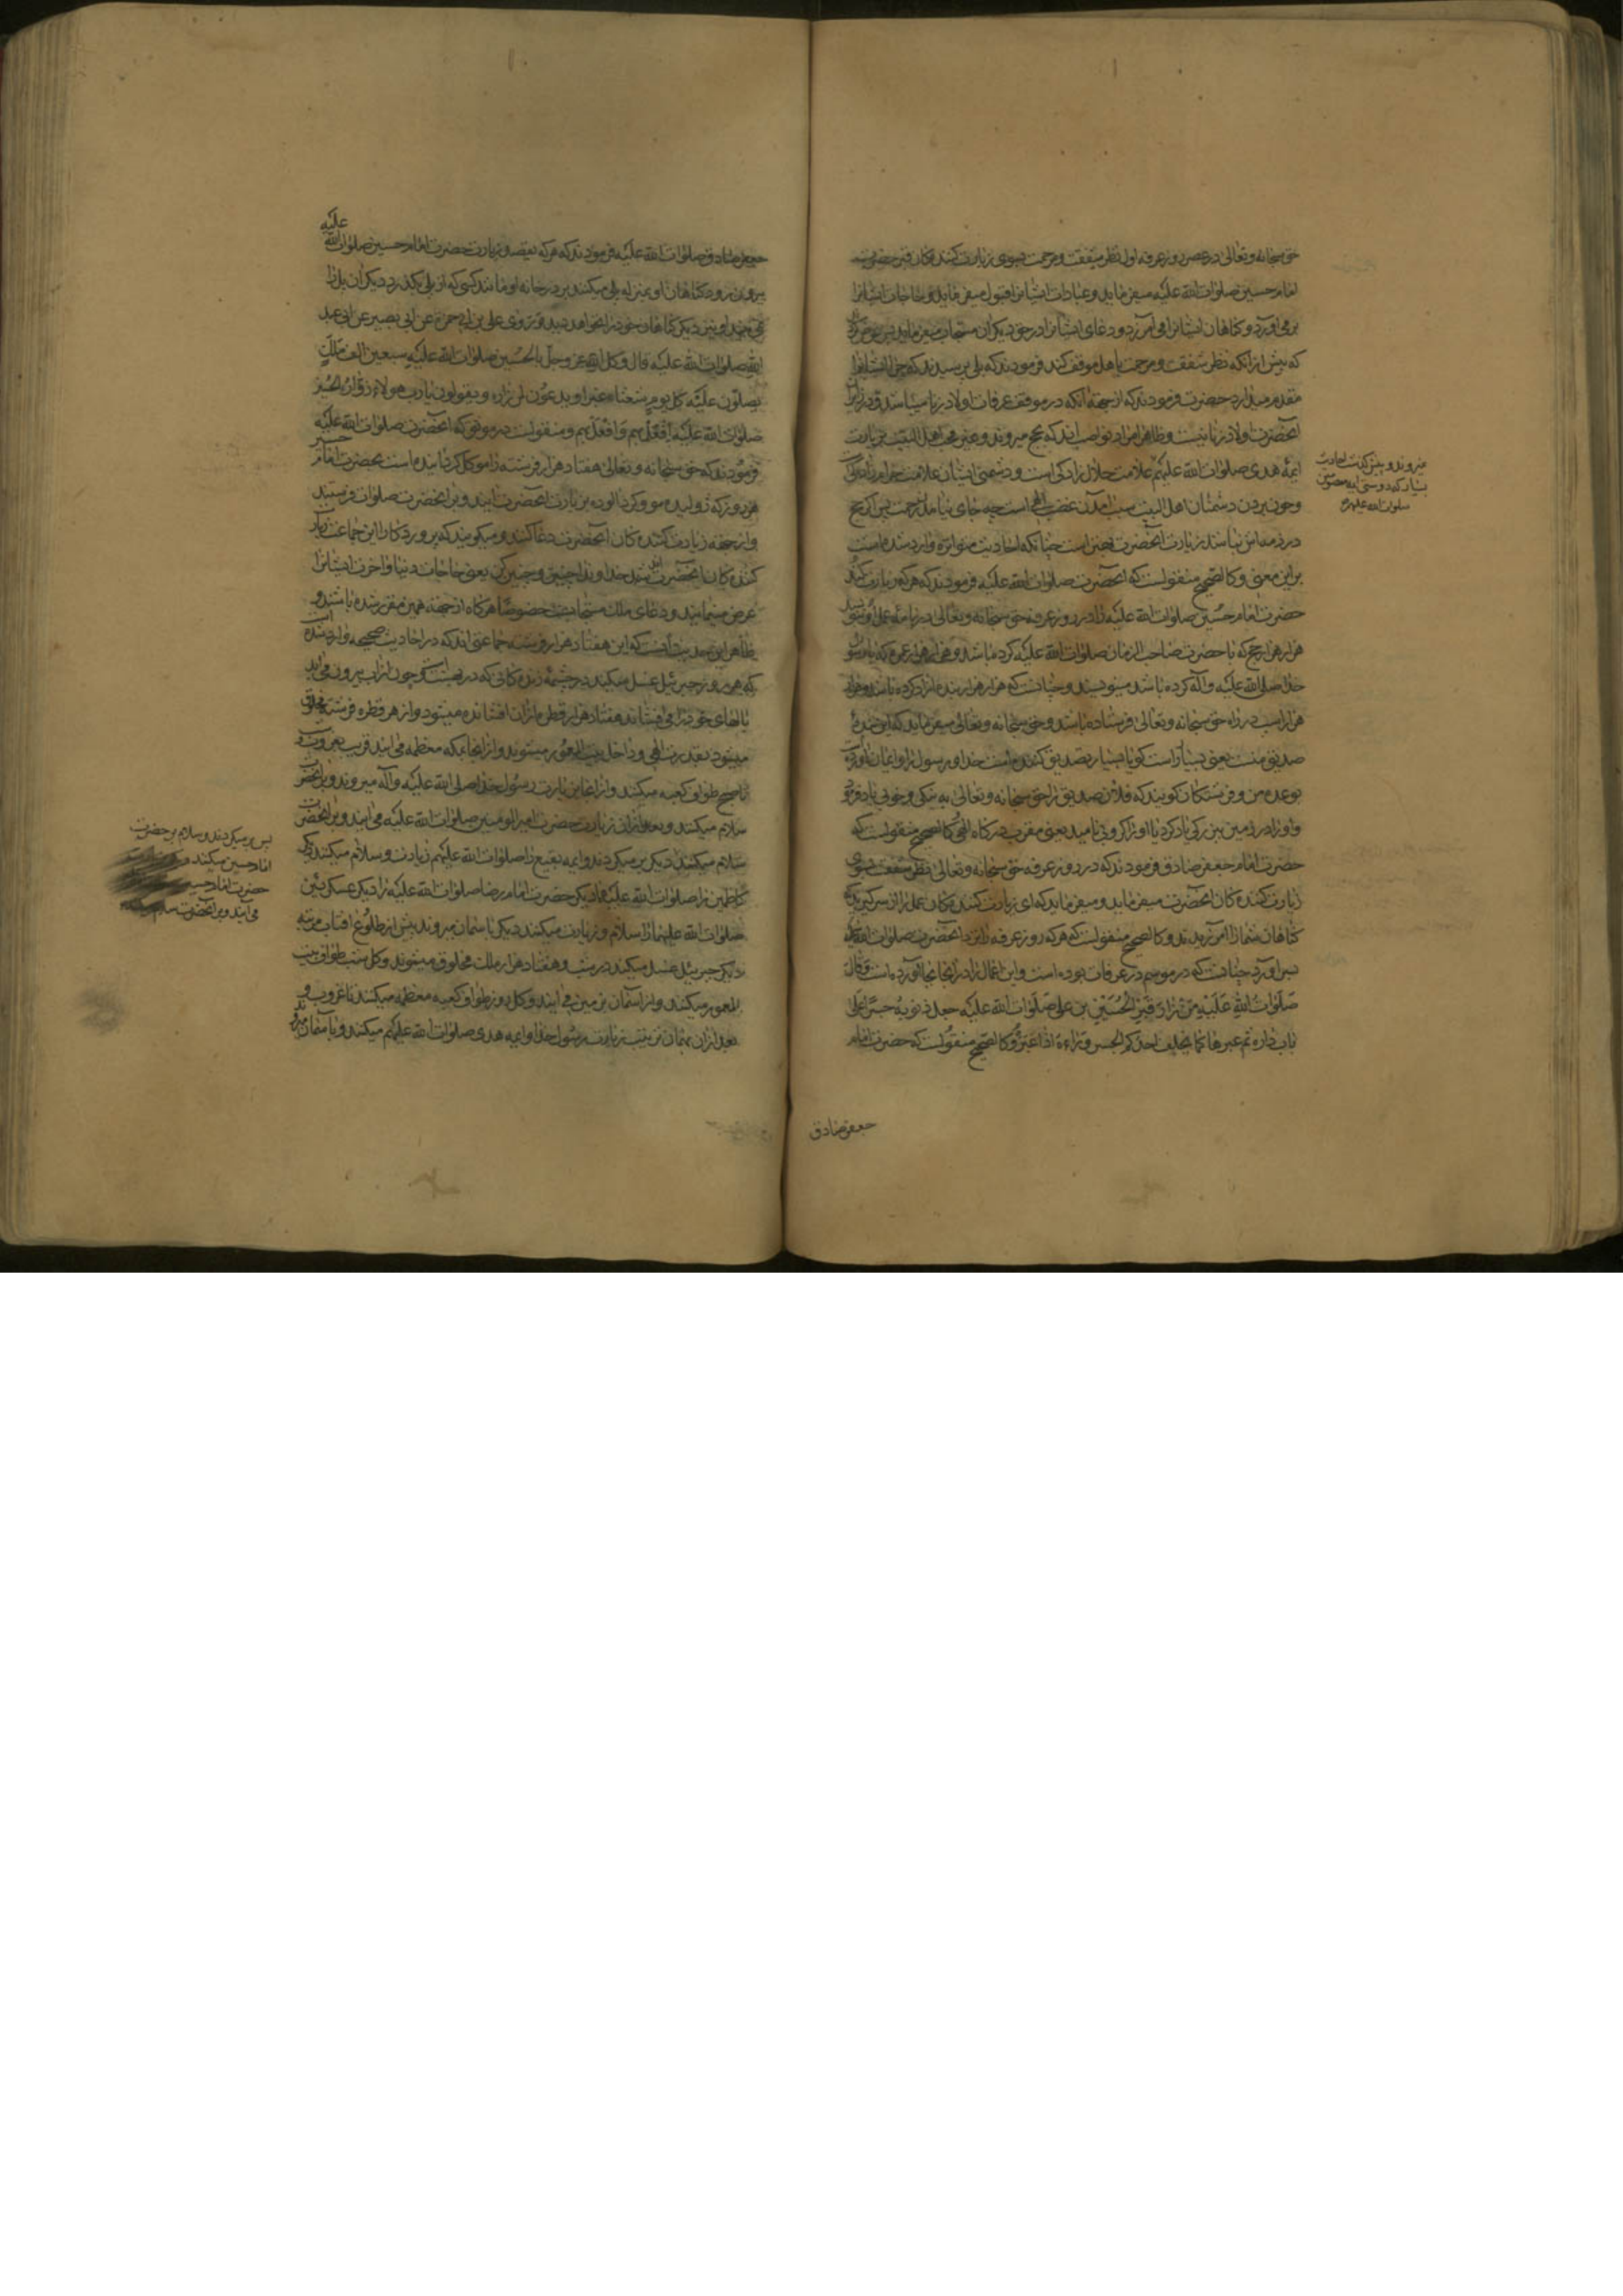 حق سبحانه وتعالی در عصر روز عرفه اول نظر شفقت ومرحمت بسوی زیارت کنندکان قبر حضرت
امام حسین صلوات الله علیه میفرماید وعبادات ایشانرا قبول میفرماید وحاجات ایشانرا
برمی آورد وکناهان ایشانرا می آمرزد ودعای ایشانرا در حق دیکران مستجاب میفرماید پس
که پیش از آنکه نظر شفقت ومرحمت باهل موقف کند فرمودند که بلی پرسیدند که چرا ایشانرا
مقدم میدارد حضرت فرمودند که از جهة آنکه در موقف عرفات اولاد زنا میباشد و در زیارت
آنحضرت اولاد زنا نیست وظاهرا مراد نواصب اند که بحج میروند وغیر محب اهل البیت بزیارت
میروند وبیش کذشت احادیث
بسیار که دوستی ایمه معصومین
صلوات الله علیهم
ایمهٔ هدی صلوات الله علیهم علامت حلال زادکی است ودشمنی ایشان علامت حرام زادکی
وچون بردن دشمنان اهل البیت سبب آمدن غضب الهی است چه جای نیامدن رحمت پس اکر حج
در ذمه اش نباشد زیارت آنحضرت بهتر است چنانکه احادیث متواتره وارد شده است
براین معنی وکالصحیح منقولست که آنحضرت صلوات الله علیه فرمودند که هر که زیارت کند
حضرت امام حسین صلوات الله علیه را در روز عرفه حق سبحانه وتعالی در نامهٔ عمل او بنویسد
هزار هزار حج که با حضرت صاحب الزمان صلوات الله علیه کرده باشد وهزار هزار عمره که با رسول
خدا صلی الله علیه وآله کرده باشد مینویسند وچنانست که هزار هزار بنده آزاد کرده باشد وهزار
هزار اسب در راه حق سبحانه وتعالی فرستاده باشد وحق سبحانه وتعالی میفرماید که این بندهٔ
صدیق منست یعنی بسیار راست کو یا بسیار تصدیق کننده است خدا ورسول را وایمان آورده
بوعدهٔ من وفرشتکان کویند که فلان صدیق را حق سبحانه وتعالی به نیکی وخوبی یاد فرمود
واو را در زمین ببزرکی یاد کرد یا او را کروبی نامید یعنی مقرب درکاه الهی وکالصحیح منقولست که
حضرت امام جعفر صادق فرمودند که در روز عرفه حق سبحانه وتعالی نظر شفقت بسوی
زیارت کننده کان آنحضرت میفرماید ومیفرماید که ای زیارت کنندکان عمل را از سر کیرید که
کناهان شما را آمرزیدند وکالصحیح منقولست که هر که روز عرفه را نزد آنحضرت صلوات الله علیه
بسر آورد چنانست که در موسم در عرفات بوده است واین اعمال را در آنجا بجا آورده است وقال
صلوات الله علیه من زار قبر الحسین بن علی صلوات الله علیه جعل ذنوبه جسرا علی
باب داره ثم عبرها کما یخلف احدکم الجسر وراءه اذا عبره وکالصحیح منقولست که حضرت امام
جعفر صادق
جعفر صادق صلوات الله علیه فرمودند که هر که بقصد زیارت حضرت امام حسین صلوات الله علیه
بیرون رود کناهان او بمنزله پلی میکنند بر در خانه او مانند کسی که از پلی بکذرد دیکر آن پل را
نمی بیند او نیز دیکر کناهان خود را نخواهد دید وروی علی بن ابی حمزة عن ابی بصیر عن ابی عبد
الله صلوات الله علیه قال وکل الله عز وجل بالحسین صلوات الله علیه سبعین الف ملک
یصلون علیه کل یوم شعثا غبرا ویدعون لمن زاره ویقولون یا رب هولاء زوار الحسین
صلوات الله علیه افعل بهم وافعل بهم ومنقولست در موثق که آنحضرت صلوات الله علیه
فرمودند که حق سبحانه وتعالی هفتاد هزار فرشته را موکل کردانیده است بحضرت امام حسین
هر روز که ژولیده مو وکردآلوده بزیارت آنحضرت آیند وبر آنحضرت صلوات فرستند
واز جهة زیارت کننده کان آنحضرت دعا کنند ومیکویند که پروردکارا این جماعت زیارت
کننده کان آنحضرت اند خداوندا چنین وچنین کن یعنی حاجات دنیا وآخرت ایشانرا
عرض مینمایند ودعای ملک مستجابست خصوصا هرکاه از جهة همین مقرر شده باشند و
ظاهر این حدیث آنست که این هفتاد هزار فرشته جماعتی اند که در احادیث صحیحه وارد شده است
که هر روز جبرئیل غسل میکند در چشمهٔ زنده کانی که در بهشت است وچون از آن بیرون می آید
بالهای خود را می افشاند هفتاد هزار قطره از آن افشانده میشود واز هر قطره فرشته مخلوق
میشود بقدرت الهی وداخل بیت المعمور میشوند واز آنجا بمکه معظمه می آیند قریب بغروب و
تا صبح طواف کعبه میکنند واز آنجا بزیارت رسول خدا صلی الله علیه وآله میروند وبر آنحضرت
سلام میکنند وبعد از آن زیارت حضرت امیر المومنین صلوات الله علیه می آیند وبر آنحضرت
سلام میکنند
پس برمیکردند وسلام بر حضرت
امام حسین میکنند
حضرت امام حسین
می آیند وبر آنحضرت سلام میکنند
دیکر برمیکردند وایمه بقیع را صلوات الله علیهم زیارت وسلام میکنند دیکر
کاظمین را صلوات الله علیهما دیکر حضرت امام رضا صلوات الله علیه را دیکر عسکریین
صلوات الله علیهما را سلام وزیارت میکنند دیکر باسمان میروند پیش از طلوع آفتاب مرتبه
دیکر جبرئیل غسل میکند در شب وهفتاد هزار ملک مخلوق میشوند وکل شب طواف بیت
المعمور میکنند واز آسمان بزمین می آیند وکل روز طواف کعبه معظمه میکنند تا غروب و
بعد از آن بهمان ترتیب زیارت رسول خدا وایمه هدی صلوات الله علیهم میکنند وبآسمان میروند